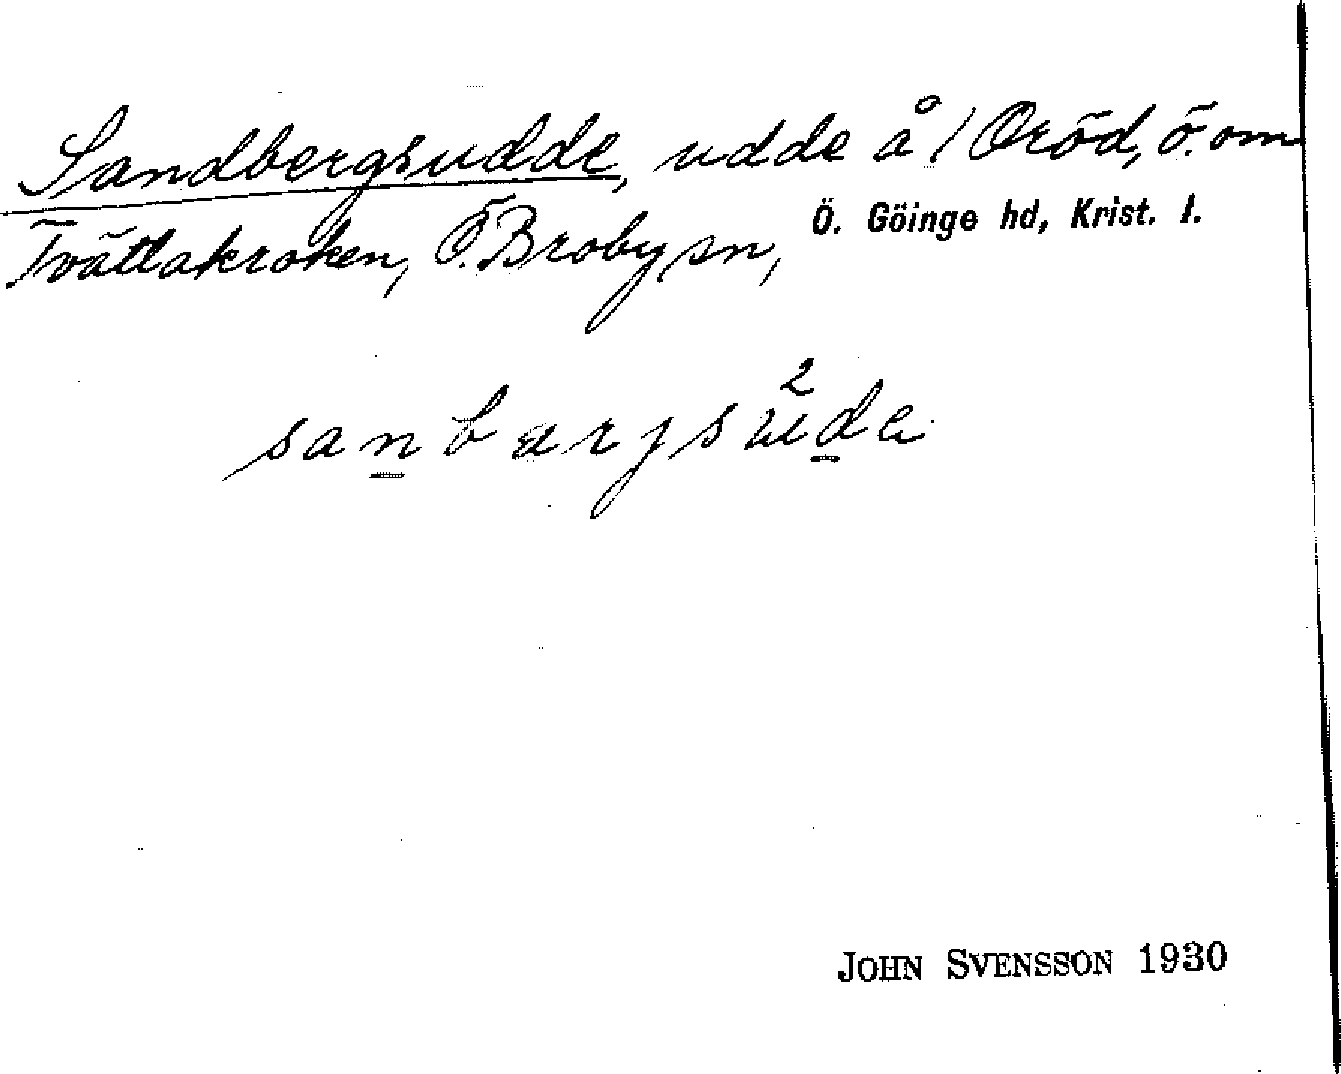 Sandbergsudde, udde å 1 Oröd, ö. om
Tvättakroken, Ö. Broby sn, Ö. Göinge hd, Krist. l.
JOHN SVENSSON 1930